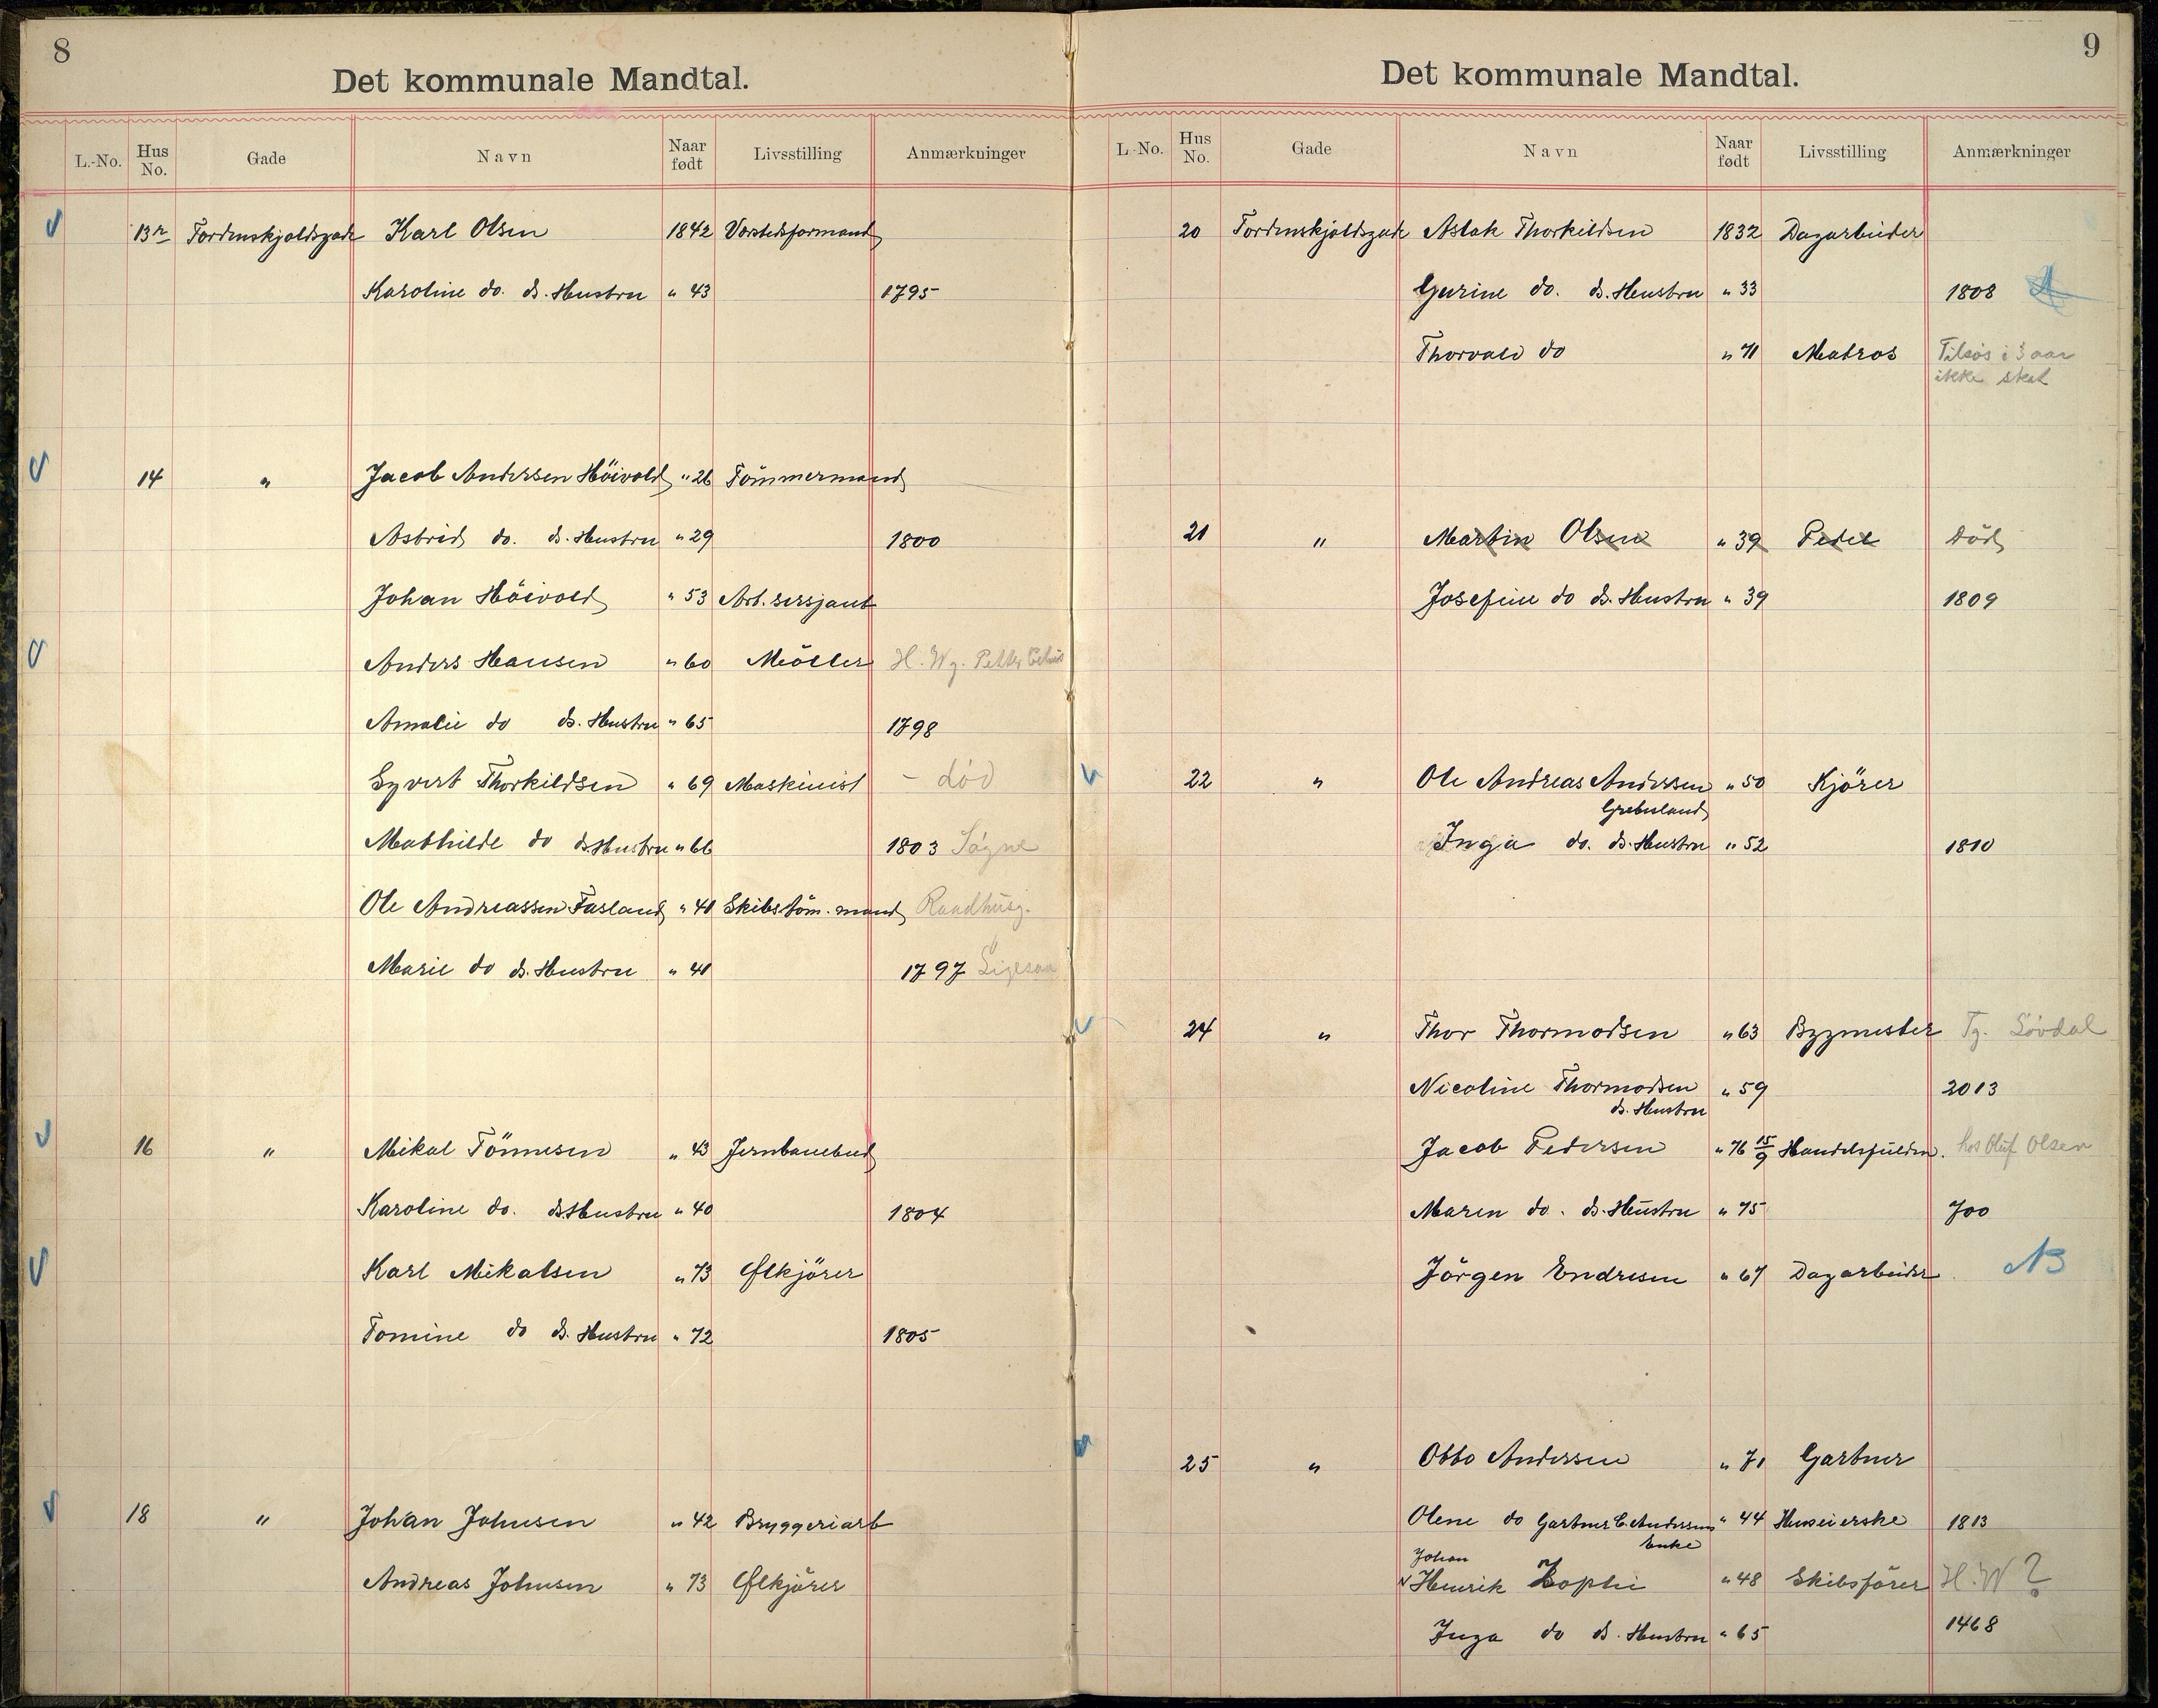 8
Det kommunale Mandtal.
L.-No. Hus No. Gade Navn Naar født Livsstilling Anmærkninger
13 Tordenskjoldsgade Karl Olsen 1842 Værstedsformand
Karoline do. ds. Hustru " 43 1795
14 " Jacob Andersen Höivold " 26 Tömmermand
Astrid do. ds. Hustru " 29 1800
Johan Höivold " 53 Art. sersjant
Anders Hansen " 60 Möller H. Wg. Petter
Amalie do ds. Hustru " 65 1798
Syvert Thorkildsen " 69 Maskinist - död
Mathilde do ds. Hustru " 66 1803 Sögne
Ole Andreassen Fasland " 41 Skibstöm.mand Raadhusg.
Marie do ds. Hustru " 41 1797 Ligesaa
16 " Mikal Tönnesen " 43 Jernbanebud
Karoline do. ds. Hustru " 40 1804
Karl Mikalsen " 73 Ölkjörer
Tomine do ds. Hustru " 72 1805
18 " Johan Johnsen " 42 Bryggeriarb
Andreas Johnsen " 73 Ölkjörer
9
Det kommunale Mandtal.
L.-No. Hus No. Gade Navn Naar født Livsstilling Anmærkninger
20 Tordenskjoldsgade Aslak Thorkildsen 1832 Dagarbeider
Gurine do. ds. Hustru " 33 1808
Thorvald do " 71 Matros Tilsös i 3 aar
ikke skat
21 " Martin Olsen " 39 Pedel död
Josefine do ds. Hustru " 39 1809
22 " Ole Andreas Andersen " 50 Kjörer
Grebesland
Inga do. ds. Hustru " 52 1810
24 " Thor Thormodsen " 63 Bygmester Tg. Lövdal
Nicoline Thormodsen " 59 2013
ds. Hustru
Jacob Pedersen " 76 15/9 Handelsfuldm. hos Oluf Olsen
Maren do. ds. Hustru " 75 700
Jörgen Endresen " 67 Dagarbeider NB
25 " Otto Andersen " 71 Gartner
Olene do Gartner C. Andersens " 44 Huseierske 1813
Enke
Johan
Henrik Zophi " 48 Skibsförer H. W ?
Inga do ds. Hustru " 65 1468